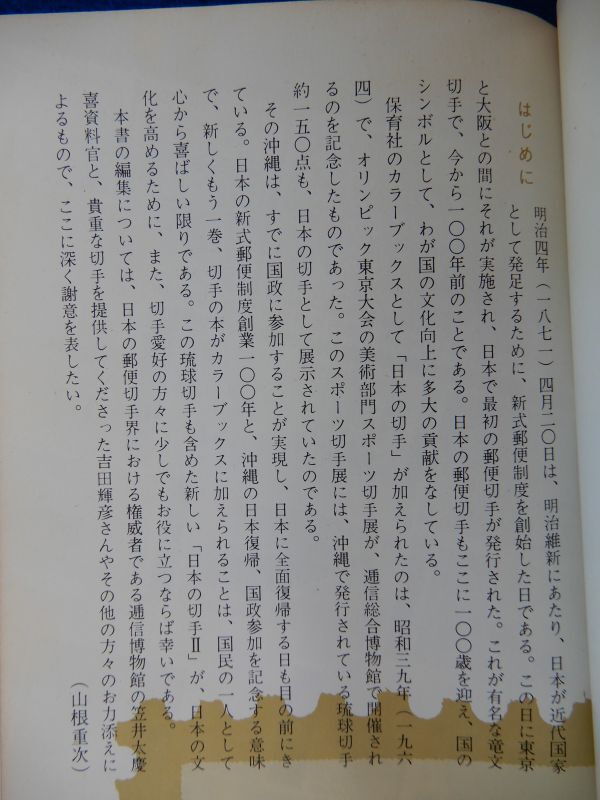 はじめに
明治四年（一八七一）四月二〇日は、明治維新にあたり、日本が近代国家
として発足するために、新式郵便制度を創始した日である。この日に東京
と大阪との間にそれが実施され、日本で最初の郵便切手が発行された。これが有名な竜文
切手で、今から一〇〇年前のことである。日本の郵便切手もここに一〇〇歳を迎え、国の
シンボルとして、わが国の文化向上に多大の貢献をなしている。
保育社のカラーブックスとして「日本の切手」が加えられたのは、昭和三九年（一九六
四）で、オリンピック東京大会の美術部門スポーツ切手展が、逓信総合博物館で開催され
るのを記念したものであった。このスポーツ切手展には、沖縄で発行されている琉球切手
約一五〇点も、日本の切手として展示されていたのである。
その沖縄は、すでに国政に参加することが実現し、日本に全面復帰する日も目の前にき
ている。日本の新式郵便制度創業一〇〇年と、沖縄の日本復帰、国政参加を記念する意味
で、新しくもう一巻、切手の本がカラーブックスに加えられることは、国民の一人として
心から喜ばしい限りである。この琉球切手も含めた新しい「日本の切手Ⅱ」が、日本の文
化を高めるために、また、切手愛好の方々に少しでもお役に立つならば幸いである。
本書の編集については、日本の郵便切手界における権威者である逓信博物館の笠井太慶
喜資料官と、貴重な切手を提供してくださった吉田輝彦さんやその他の方々のお力添えに
よるもので、ここに深く謝意を表したい。
（山根重次）